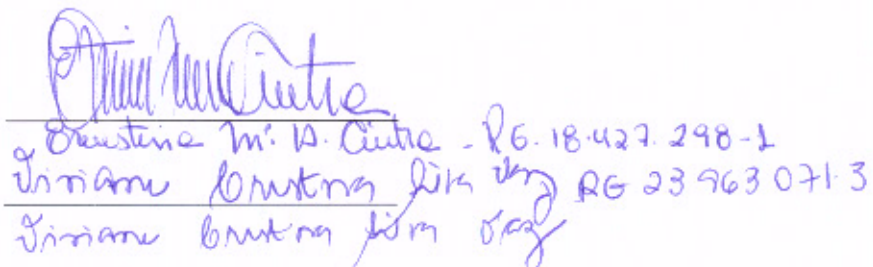 Cristina Mª. A. Cintra - RG. 18.427.298-1
Viviane Cristina Silva Vaz RG 23 963 071-3
Viviane Cristina Silva Vaz